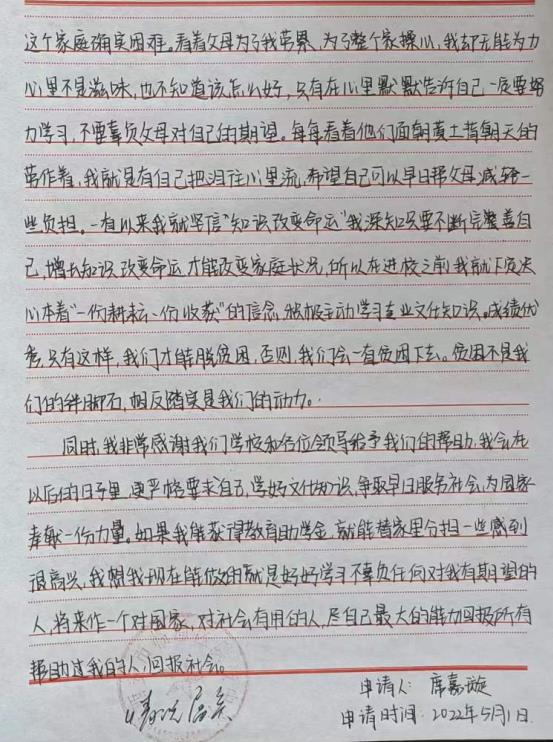 这个家庭确实困难。看着父母为了我劳累,为了整个家操心,我却无能为力
心里不是滋味,也不知道该怎么好,只有在心里默默告诉自己一定要努
力学习,不要辜负父母对自己的期望。每每看着他们面朝黄土背朝天的
劳作着,我就是有自己把泪往心里流,希望自己可以早日帮父母减轻一
些负担。一直以来我就坚信“知识改变命运”我深知只要不断完整善自
己,增长知识,改变命运,才能改变家庭状况,所以在进校之前我就下定决
心本着“一份耕耘一份收获”的信念,积极主动学习专业文化知识。成绩优
秀,只有这样,我们才能脱贫困,否则,我们会一直贫困下去。贫困不是我
们的绊脚石,相反踏实是我们的动力。
同时,我非常感谢我们学校和各位领导给予我们的帮助,我会在
以后的日子里,更严格要求自己,学好文化知识,争取早日服务社会,为国家
奉献一份力量。如果我能获得教育助学金,就能替家里分担一些感到
很高兴,我想我现在能做的就是好好学习不辜负任何对我有期望的
人,将来作一个对国家,对社会有用的人,尽自己最大的能力回报所有
帮助过我的人,回报社会。
情况属实
申请人:席嘉璇
申请时间:2022年5月1日